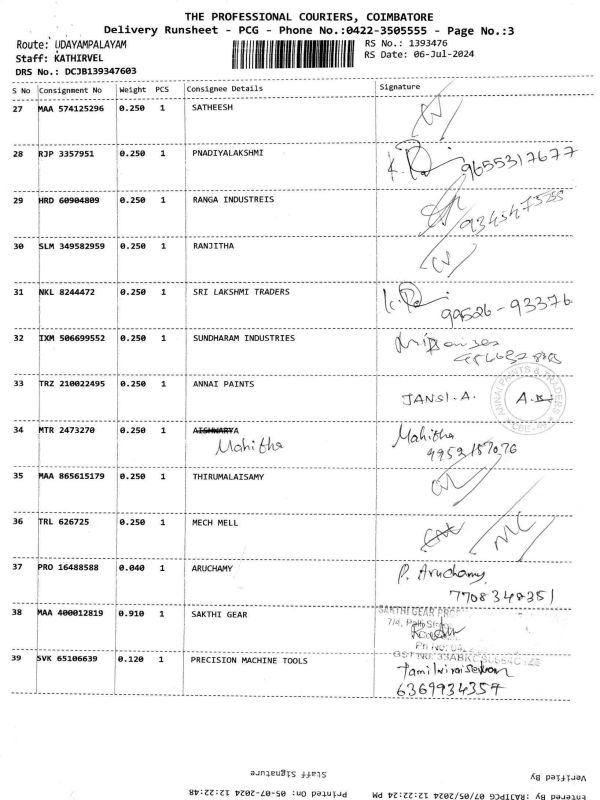 THE PROFESSIONAL COURIERS, COIMBATORE
Delivery Runsheet - PCG - Phone No.:0422-3505555 - Page No.:3
Route: UDAYAMPALAYAM
RS No.: 1393476
Staff: KATHIRVEL
RS Date: 06-Jul-2024
DRS No.: DCJB139347603
S No Consignment No Weight PCS Consignee Details Signature
27 MAA 574125296 0.250 1 SATHEESH
28 RJP 3357951 0.250 1 PNADIYALAKSHMI
9655317677
29 HRD 60904809 0.250 1 RANGA INDUSTREIS
30 SLM 349582959 0.250 1 RANJITHA
31 NKL 8244472 0.250 1 SRI LAKSHMI TRADERS
99526-93376
32 IXM 506699552 0.250 1 SUNDHARAM INDUSTRIES
33 TRZ 210022495 0.250 1 ANNAI PAINTS JANSI.A.
ANNAI PAINTS & TRADERS
34 MTR 2473270 0.250 1 AISHWARYA Mahitha
Mahitha
35 MAA 865615179 0.250 1 THIRUMALAISAMY
36 TRL 626725 0.250 1 MECH MELL
37 PRO 16488588 0.040 1 ARUCHAMY P. Aruchamy
7708348351
38 MAA 400012819 0.910 1 SAKTHI GEAR SAKTHI GEAR
39 SVK 65106639 0.120 1 PRECISION MACHINE TOOLS
6369934354
Staff Signature
Verified By
Printed On: 05-07-2024 12:22:48
Entered By :RAJIPCG 07/05/2024 12:22:24 PM